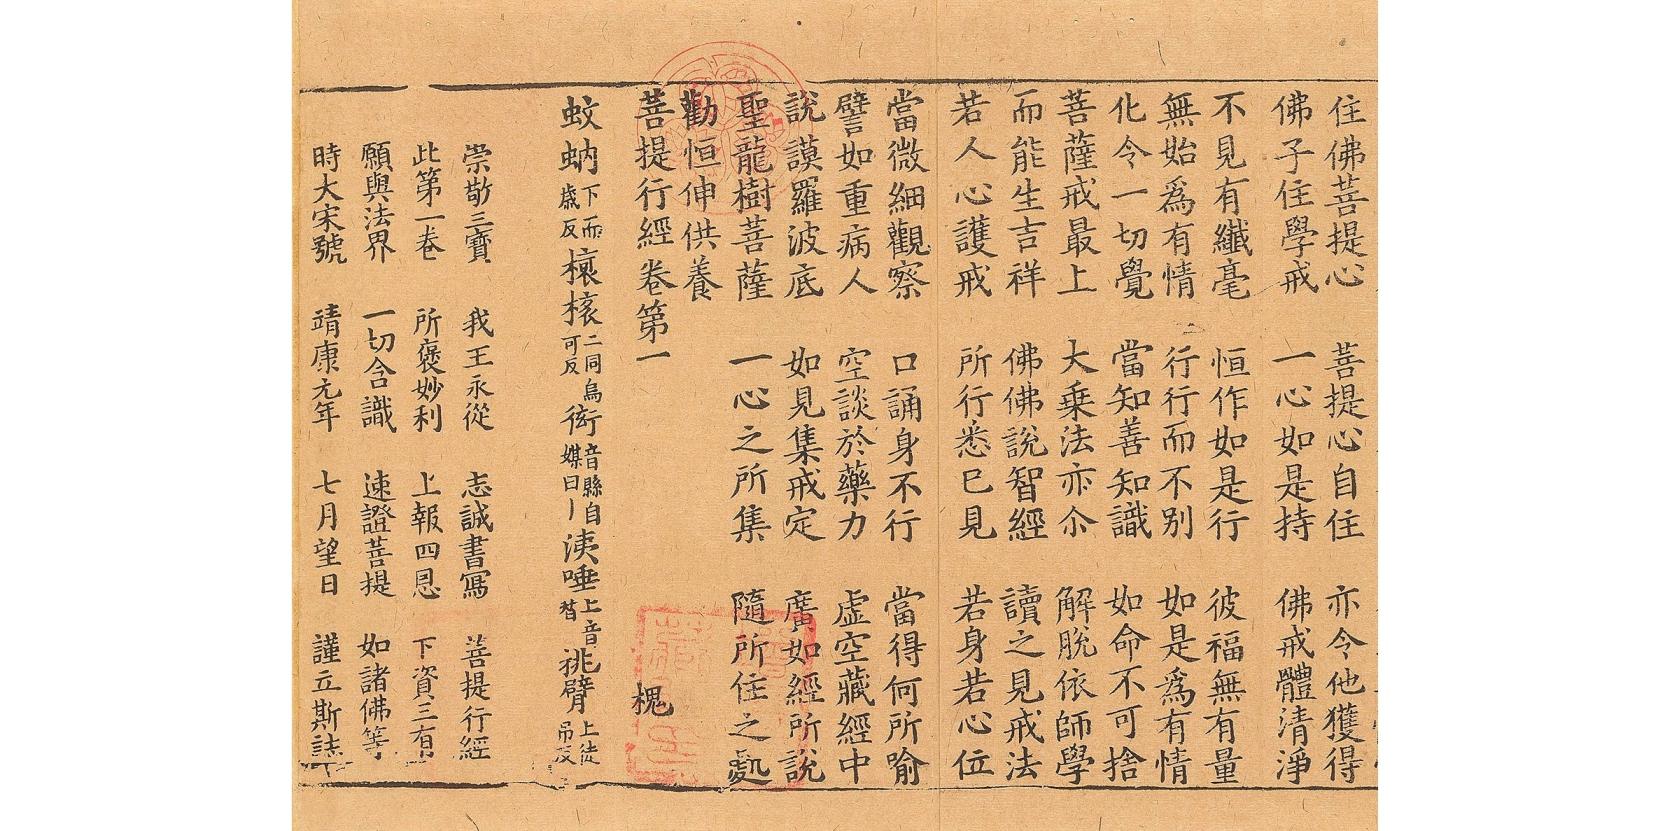 住佛菩提心 菩提心自住 亦令他獲得
佛子住學戒 一心如是持 佛戒體清淨
不見有纖毫 恒作如是行 彼福無有量
無始爲有情 行行而不別 如是爲有情
化令一切覺 當知善知識 如命不可捨
菩薩戒最上 大乗法亦尒 解脫依師學
而能生吉祥 佛佛說智經 讀之見戒法
若人心護戒 所行悉已見 若身若心位
當微細觀察 口誦身不行 當得何所喻
譬如重病人 空談於藥力 虛空藏經中
說謨羅波底 如見集戒定 廣如經所說
聖龍樹菩薩 一心之所集 隨所住之處
勸恒伸供養
菩提行經卷第一 槐
蚊蚋下而歲反榱榇二同烏可反衒音縣自媒曰丨洟唾上音替祧臂上徒吊反
崇敬三寶 我王永從 志誠書寫 菩提行經
此第一卷 所褒妙利 上報四恩 下資三有
願與法界 一切含識 速證菩提 如諸佛等
時大宋號 靖康元年 七月望日 謹立斯誌